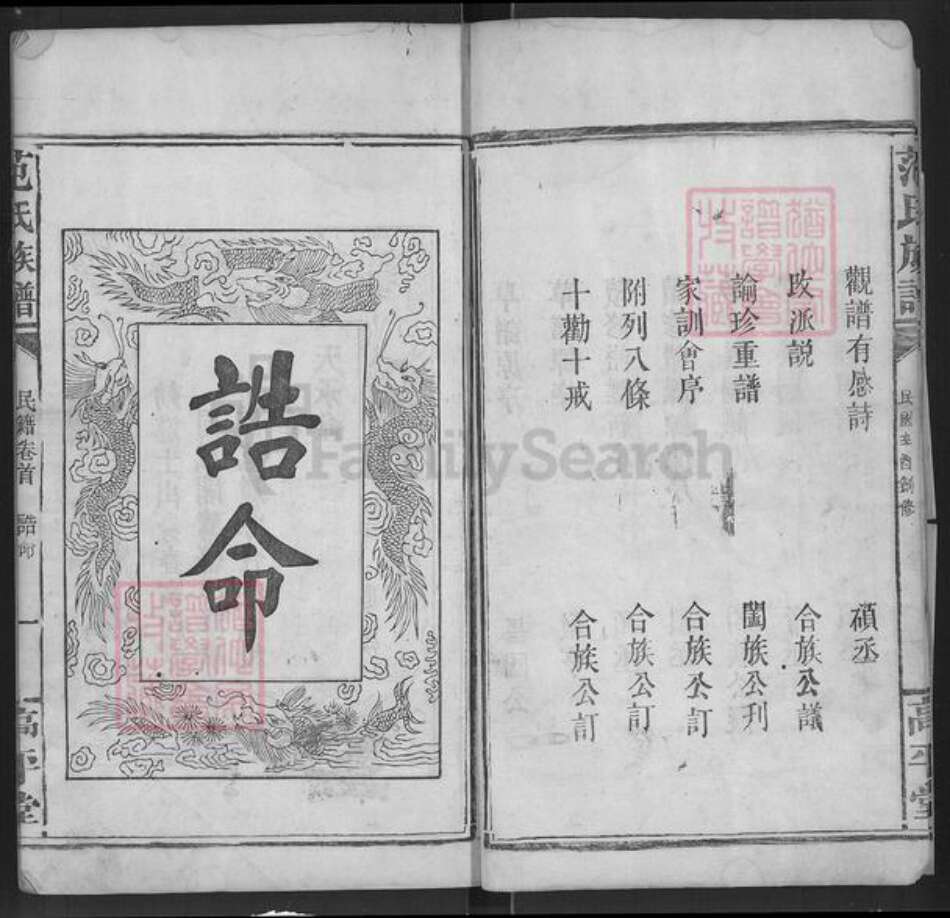 范氏族譜
民國辛酉創修
高平堂
觀譜有感詩 碩丞
攺派説 合族公議
論珍重譜 闔族公刊
家訓會序 合族公訂
附列八條 合族公訂
十勸十戒 合族公訂
誥命
范氏族譜
民籍卷首 誥命
一
高平堂
FamilySearch